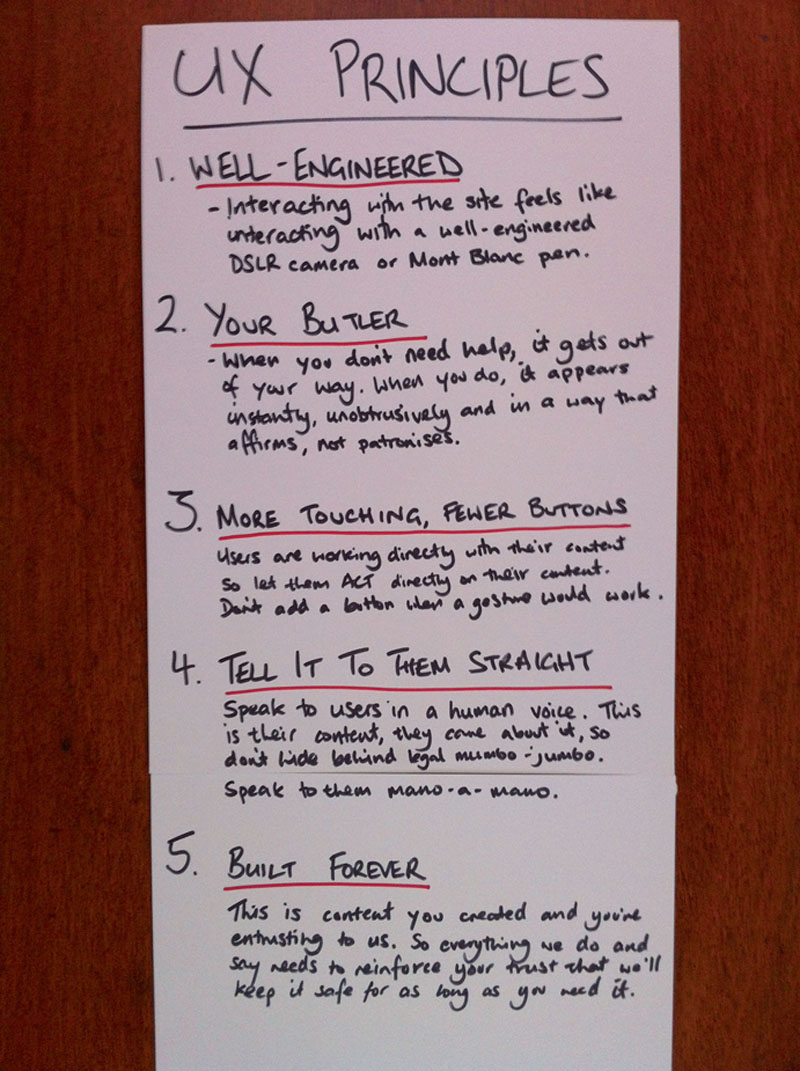 UX PRINCIPLES
1. WELL-ENGINEERED
- Interacting with the site feels like
interacting with a well-engineered
DSLR camera or Mont Blanc pen.
2. YOUR BUTLER
- When you don't need help, it gets out
of your way. When you do, it appears
instantly, unobtrusively and in a way that
affirms, not patronises.
3. MORE TOUCHING, FEWER BUTTONS
Users are working directly with their content
so let them ACT directly on their content.
Don't add a button when a gesture would work.
4. TELL IT TO THEM STRAIGHT
Speak to users in a human voice. This
is their content, they care about it, so
don't hide behind legal mumbo-jumbo.
Speak to them mano-a-mano.
5. BUILT FOREVER
This is content you created and you're
entrusting to us. So everything we do and
say needs to reinforce your trust that we'll
keep it safe for as long as you need it.